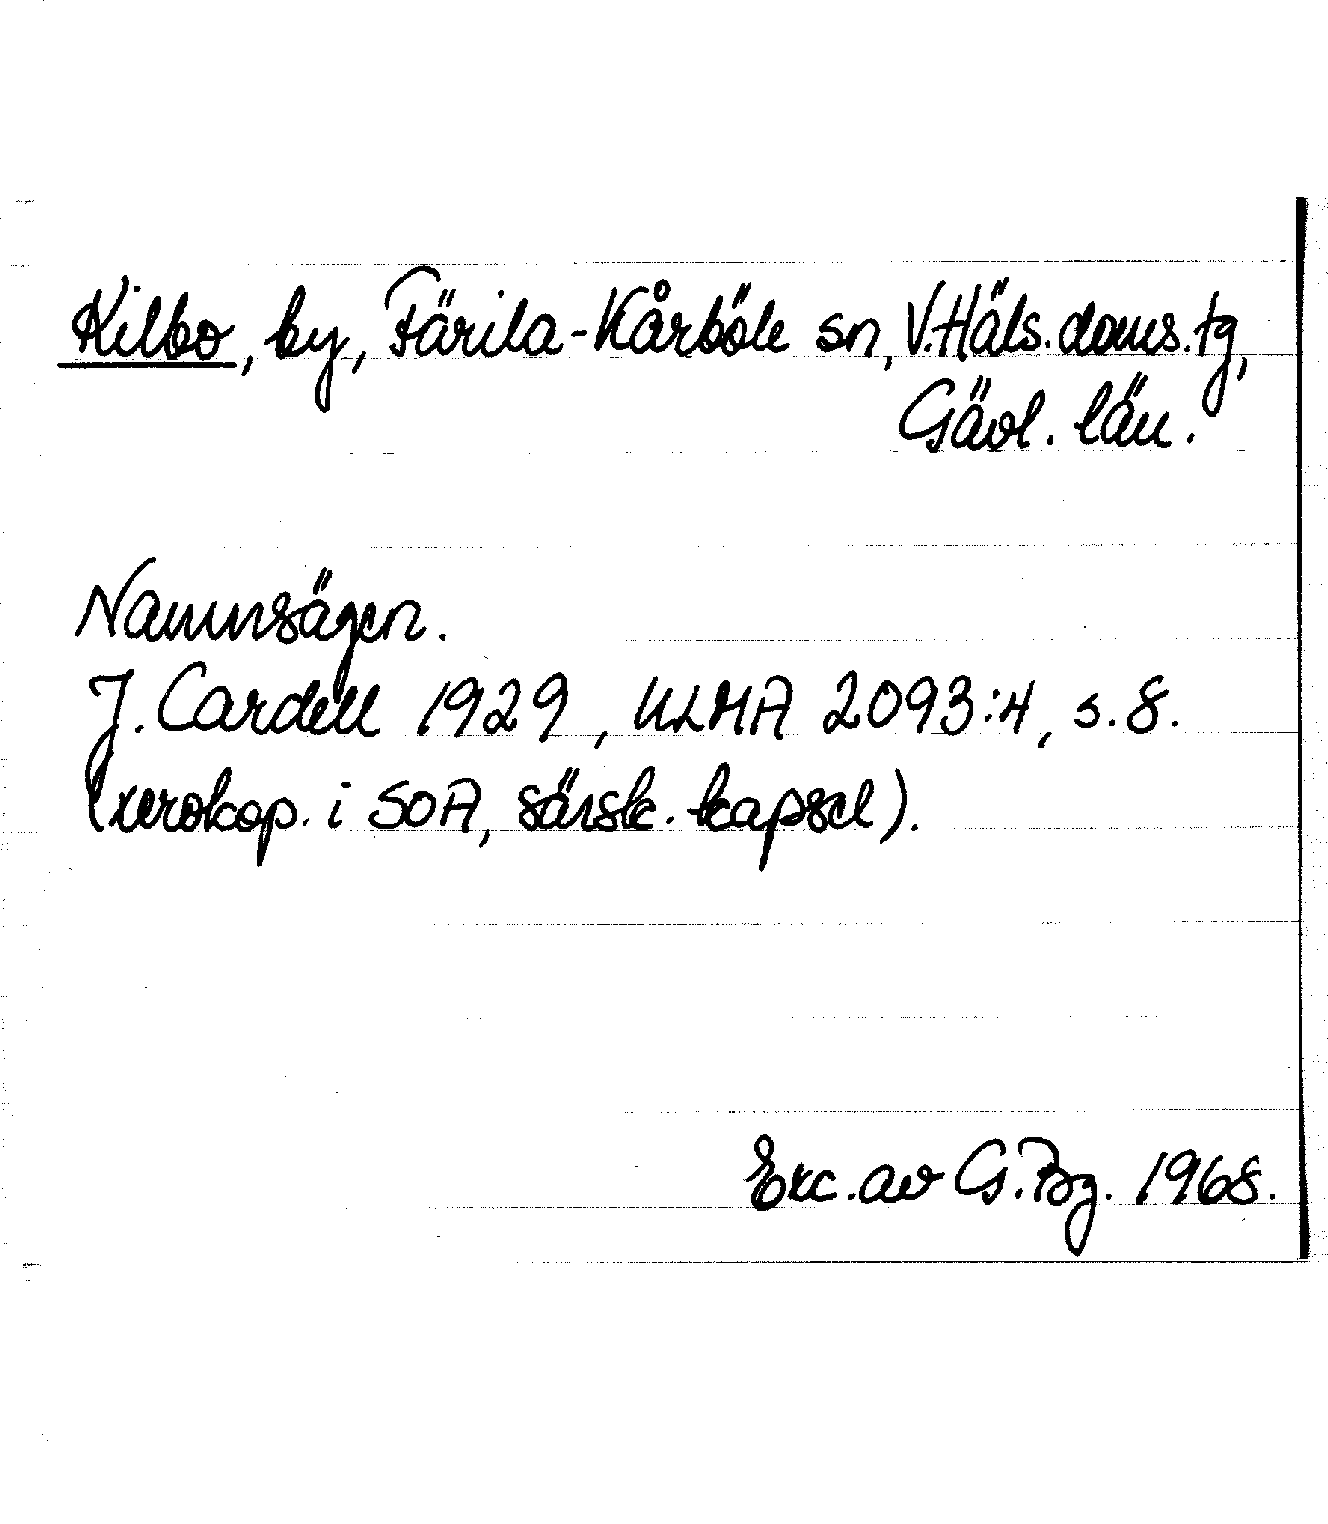 Kilbo, by, Färila-Kårböle sn, V.Häls.doms.tg,
Gävl. län.
Namnsägen.
J. Cardell 1929, ULMA 2093:4, s. 8.
(xerokop. i SOA, särsk. kapsel).
Exc. av G. Bg. 1968.